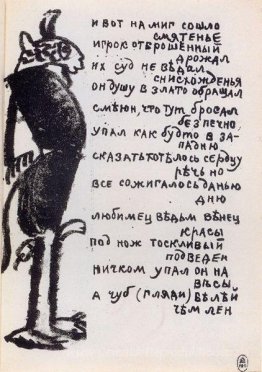 и вот на миг сошло
смятенье
игрок отброшенный
дрожал
их суд не ведал
снисхожденья
он душу в злато обращал
смеюн, что тут бросал
безпечно,
упал как будто в за-
падню
сказать хотелось сердцу
речь но
все сожигалось данью
дню
любимец ведьм венец
красы
под нож тоскливый
подведен
ничком упал он на
весы
а чуб (гляди) белей
чем лен